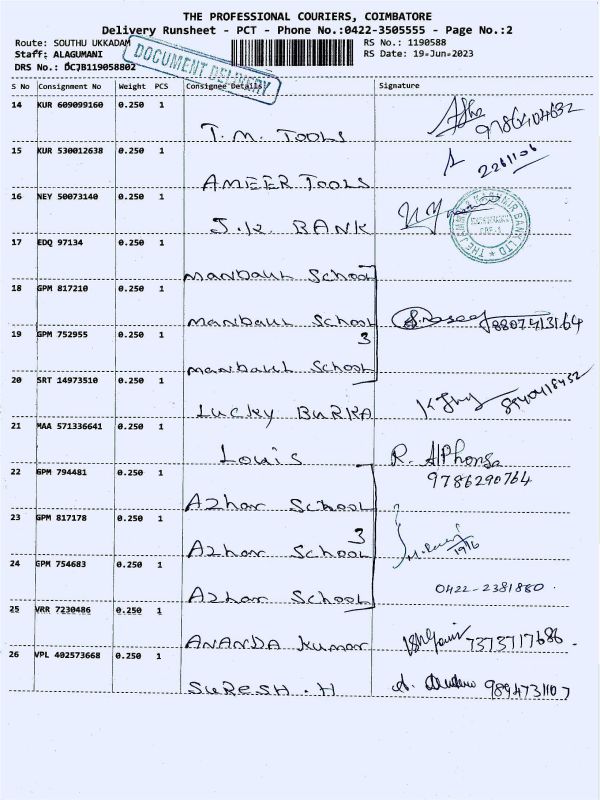 THE PROFESSIONAL COURIERS, COIMBATORE
Delivery Runsheet - PCT - Phone No.:0422-3505555 - Page No.:2
Route: SOUTHU UKKADAM RS No.: 1190588
Staff: ALAGUMANI RS Date: 19-Jun-2023
DRS No.: DCJB119058802
DOCUMENT DELIVERY
S No Consignment No Weight PCS Consignee Details Signature
14 KUR 609099160 0.250 1
T.M. TOOLS 9786404632
15 KUR 530012638 0.250 1
AMEER TOOLS 2261106
16 NEY 50073140 0.250 1
J.K. BANK
THE JAMMU & KASHMIR BANK LTD
17 EDQ 97134 0.250 1
manbaul School
18 GPM 817210 0.250 1
manbaul School 8807413164
19 GPM 752955 0.250 1
3
manbaul School
20 SRT 14973510 0.250 1
LUCKY BURKA 8940418452
21 MAA 571336641 0.250 1
Louis R. Alphonsa
9786290764
22 GPM 794481 0.250 1
Azhar School
23 GPM 817178 0.250 1
3
Azhar School 19/6
24 GPM 754683 0.250 1
Azhar School 0422-2381880
25 VRR 7230486 0.250 1
ANANDA Kumar 7373717686
26 VPL 402573668 0.250 1
SURESH.H 9894731107